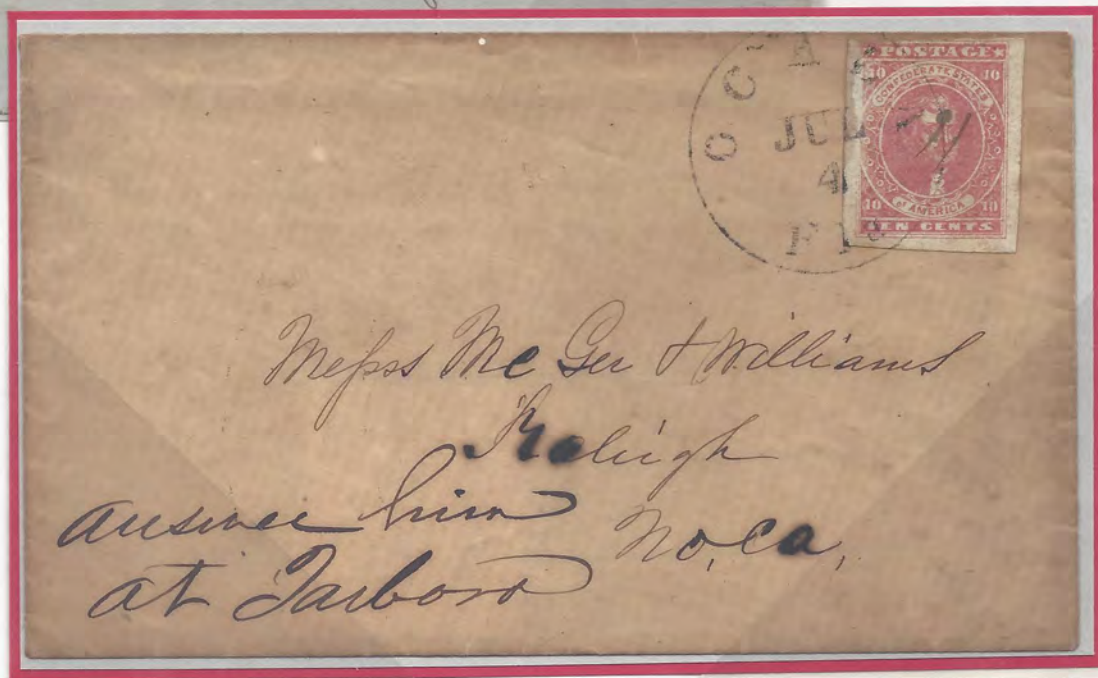 POSTAGE
10 10
CONFEDERATE STATES
of AMERICA
10 10
TEN CENTS
JUL
4
Messs Mc Gee & Williams
Raleigh
No, Ca,
answer him
at Tarboro